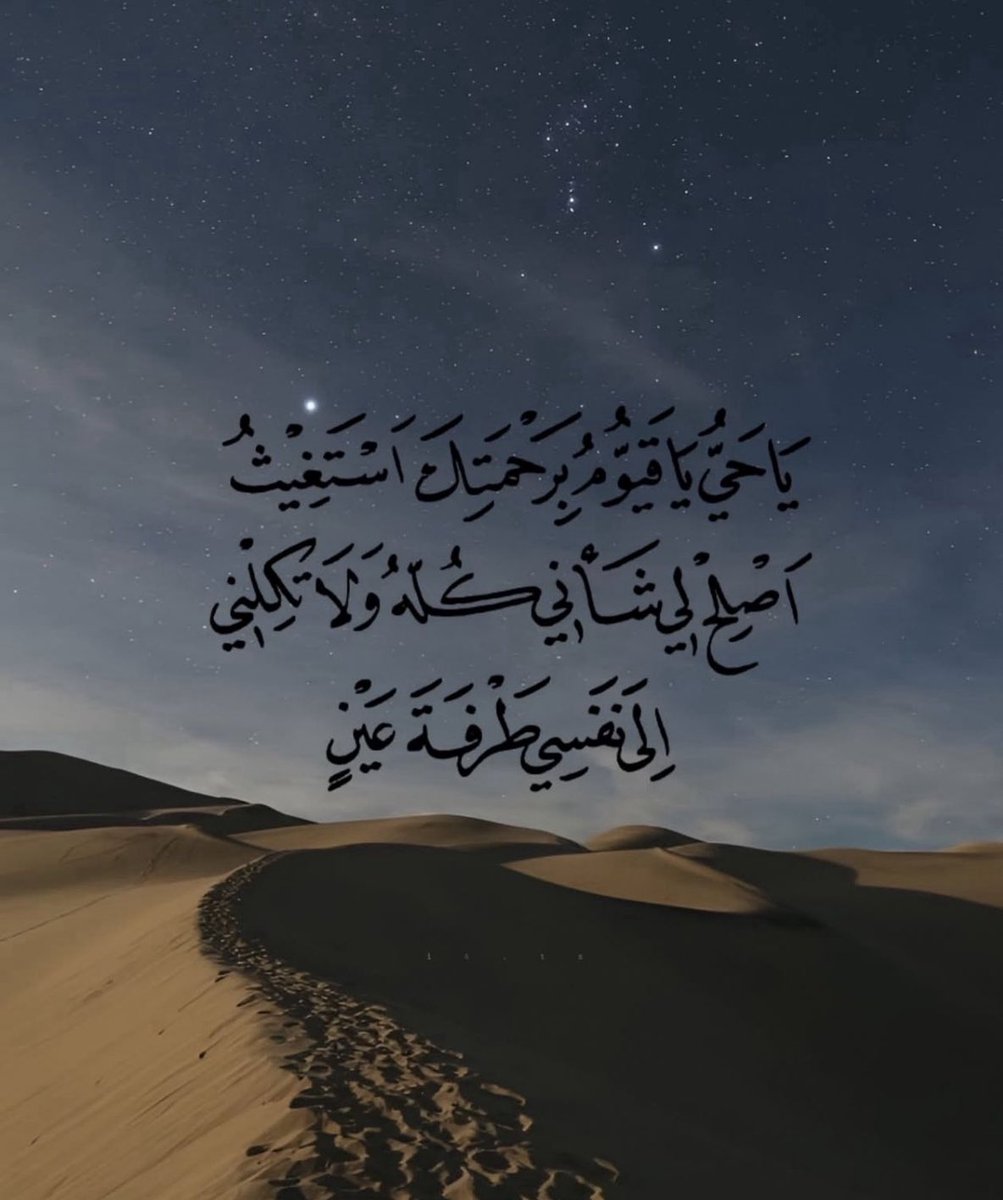 يَا حَيُّ يَا قَيُّوْمُ بِرَحْمَتِكَ اَسْتَغِيْثُ
اَصْلِحْ لِي شَأْنِي كُلَّهُ وَلَا تَكِلْنِي
اِلَى نَفْسِي طَرْفَةَ عَيْنٍ